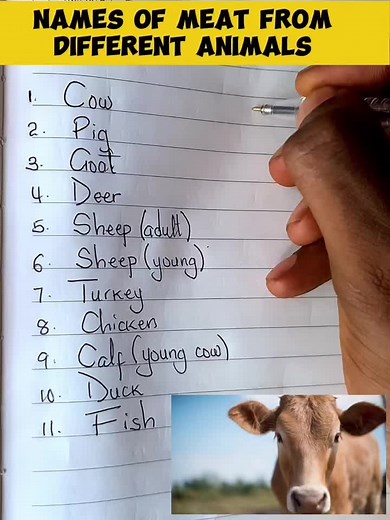 NAMES OF MEAT FROM
DIFFERENT ANIMALS
1. Cow
2. Pig
3. Goat
4. Deer
5. Sheep (adult)
6. Sheep (young)
7. Turkey
8. Chicken
9. Calf (young cow)
10. Duck
11. Fish